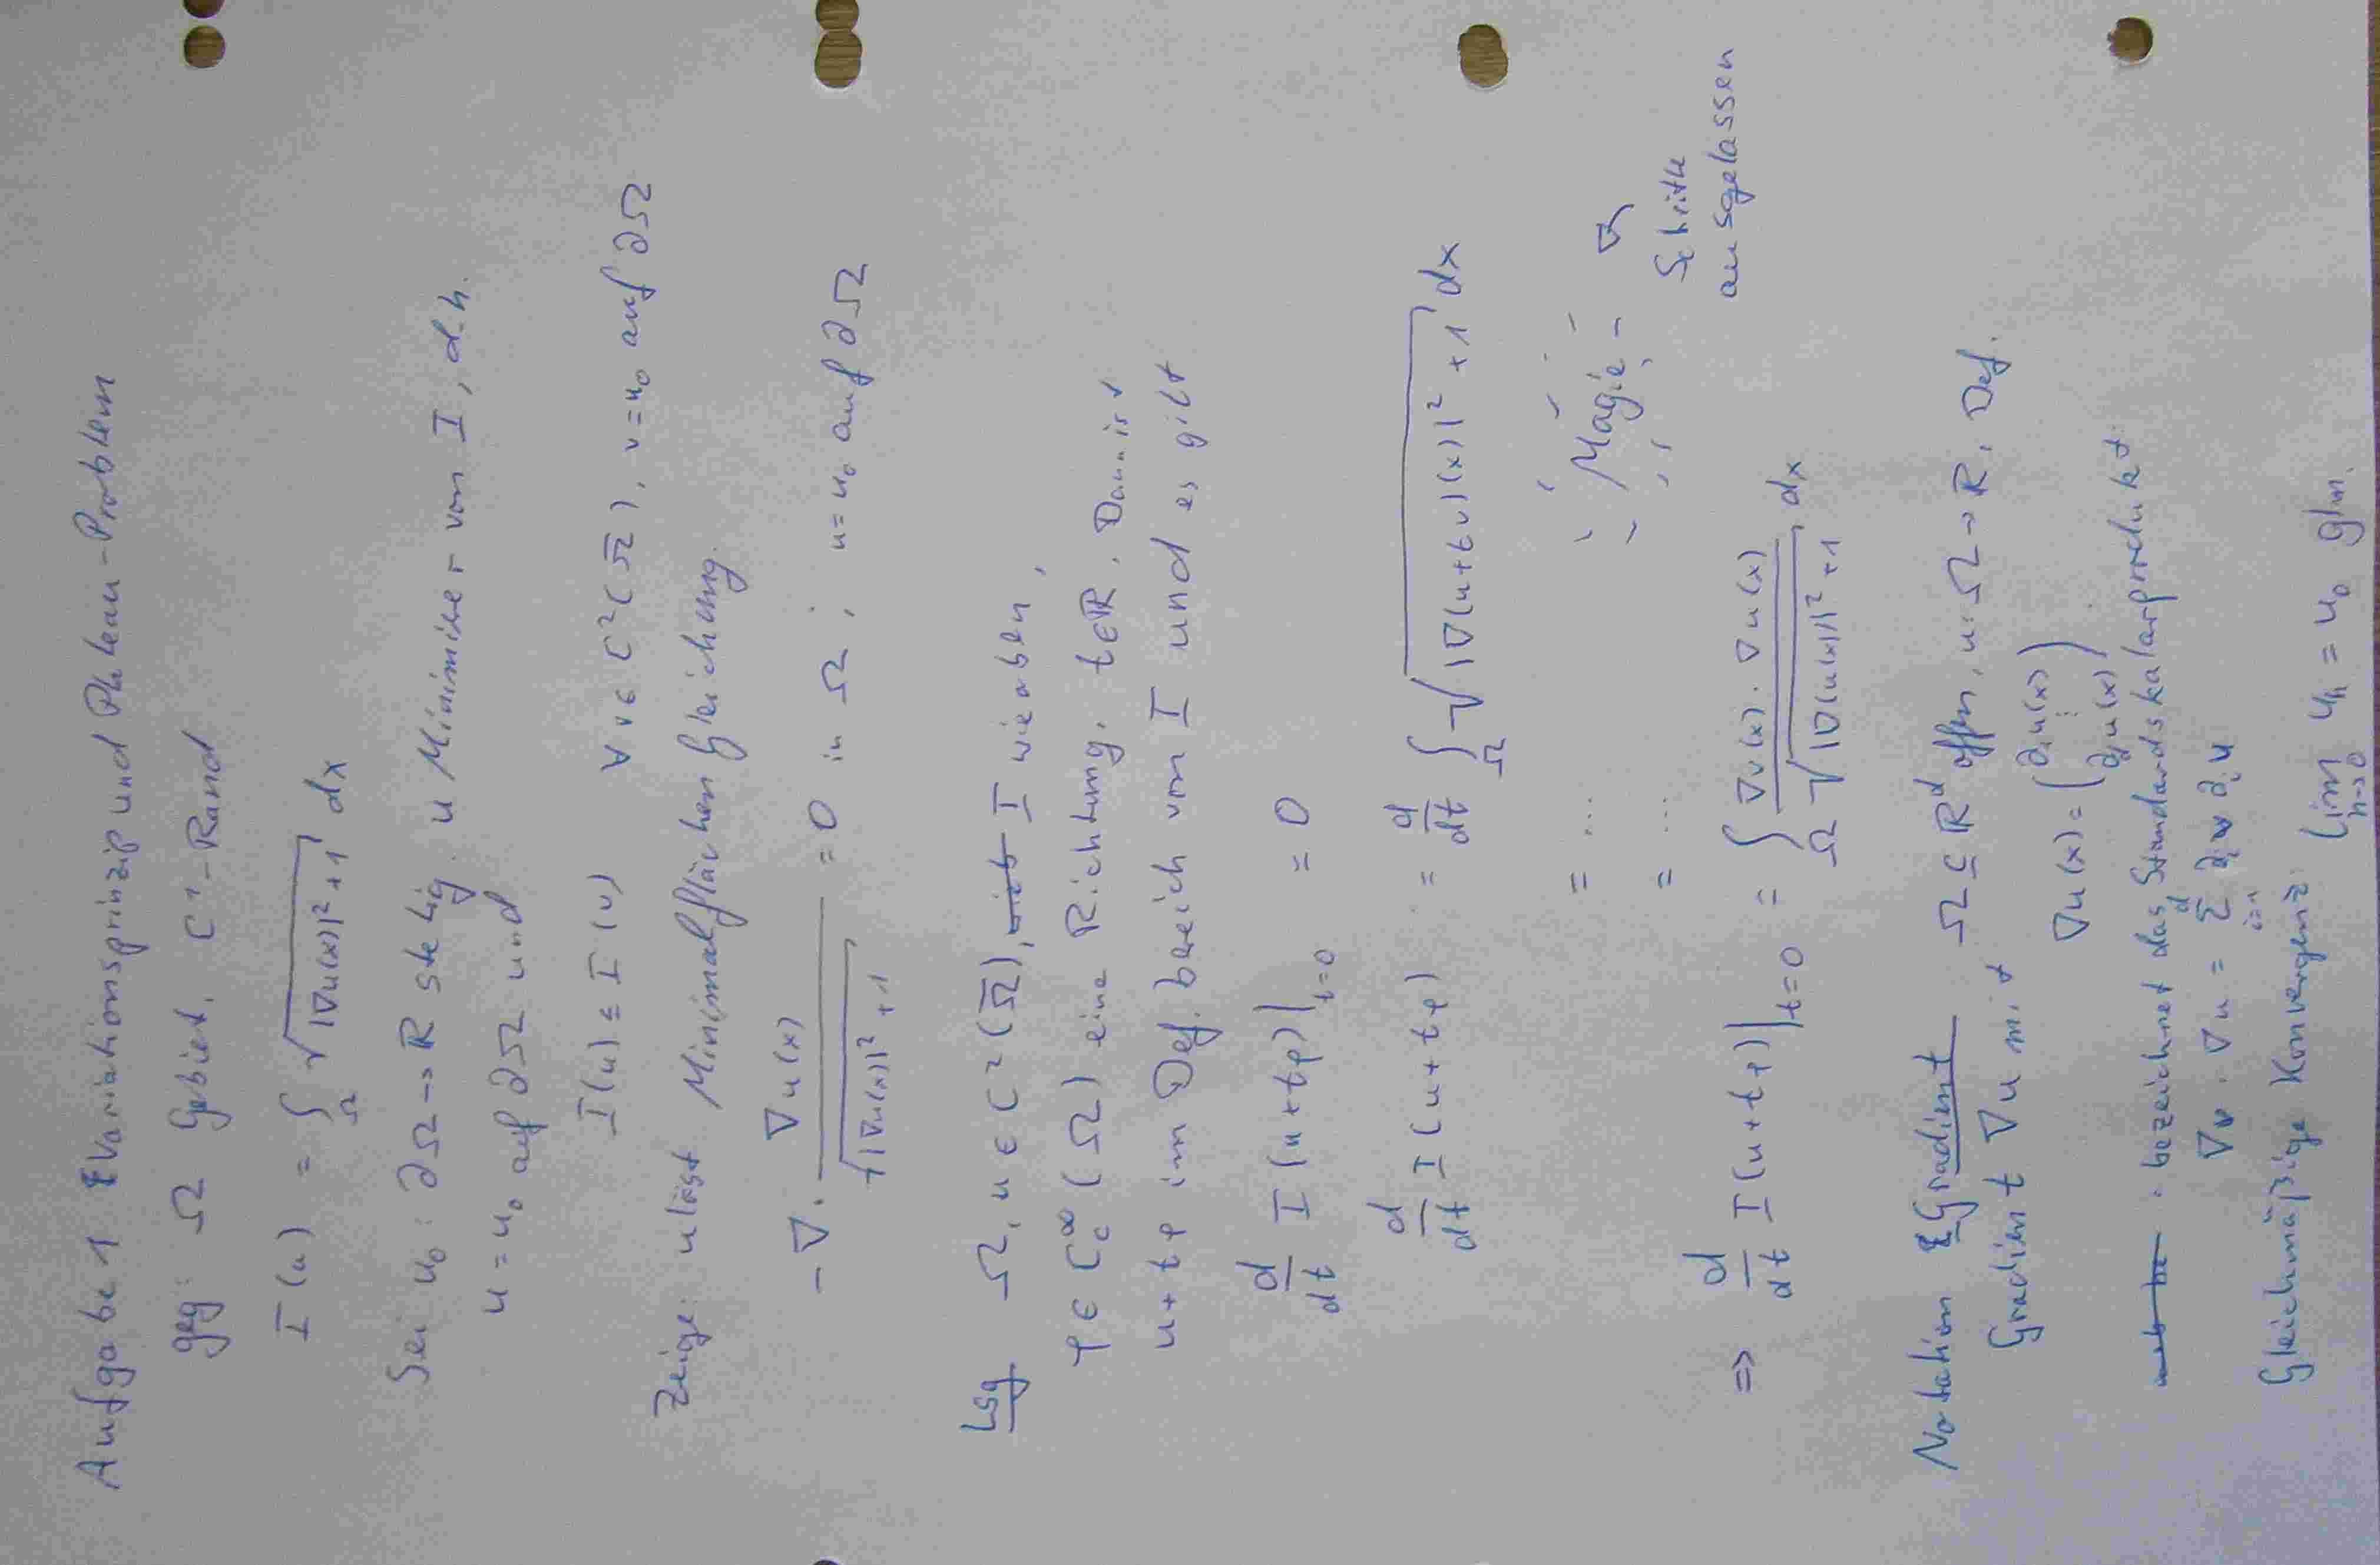 Aufgabe 1 Variationsprinzip und Plateau-Problem
geg: Ω Gebiet, C¹-Rand
I(u) = ∫_Ω √(|∇u(x)|²+1) dx
Sei u₀: ∂Ω → ℝ stetig. u Minimierer von I, d.h.
u = u₀ auf ∂Ω und
I(u) ≤ I(v) ∀ v ∈ C²(Ω̄), v = u₀ auf ∂Ω
Zeige: u löst Minimalflächengleichung.
-∇· ∇u(x) / √(|∇u(x)|²+1) = 0 in Ω ; u = u₀ auf ∂Ω
Lsg Ω, u ∈ C²(Ω̄), I wie oben,
φ ∈ C_c^∞(Ω) eine Richtung, t ∈ ℝ. Dann ist
u + tφ im Def. bereich von I und es gilt
d/dt I(u+tφ)|_{t=0} = 0
d/dt I(u+tφ) = d/dt ∫_Ω √(|∇(u+tv)(x)|²+1) dx
= ... Magie
= ... Schritte
ausgelassen
⇒ d/dt I(u+tφ)|_{t=0} = ∫_Ω ∇v(x)·∇u(x) / √(|∇(u(x))|²+1) dx
Notation Gradient Ω ⊆ ℝ^d offen, u: Ω → ℝ, Def.
Gradient ∇u mit
∇u(x) = (∂₁u(x) ⋮ ∂_d u(x))
· bezeichnet das Standardskalarprodukt:
∇v · ∇u = Σ_{i=1}^d ∂_i v ∂_i u
Gleichmäßige Konvergenz: lim_{n→0} u_n = u₀ glm.